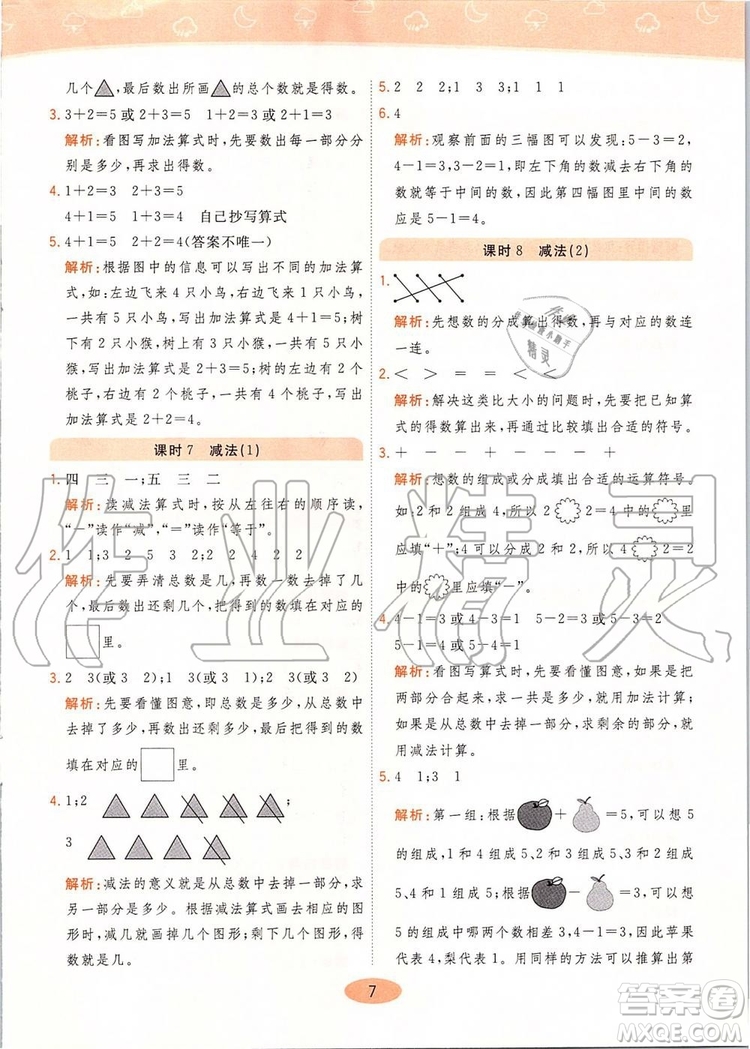 几个,最后数出所画的总个数就是得数。
3. 3+2=5 或 2+3=5 1+2=3 或 2+1=3
解析:看图写加法算式时,先要数出每一部分分
别是多少,再求出得数。
4. 1+2=3 2+3=5
4+1=5 1+4=5 自己抄写算式
5. 4+1=5 2+2=4(答案不唯一)
解析:根据图中的信息可以写出不同的加法算
式,如:左边飞来 4 只小鸟,右边飞来 1 只小鸟,
一共有 5 只小鸟,写出加法算式是 4+1=5;大
树下有 2 只小猴,写出加法算式是 1+1=2;左
边有 2 个桃子,右边有 2 个桃子,一共有 4 个
桃子,写出加法算式是 2+2=4。
课时 7 减法(1)
1. 四 三 一;五 三 二
解析:读减法算式时,按从左往右的顺序读,
“-”读作“减”,“=”读作“等于”。
2. 1 1;3 2 5 3 2;4 2 2 2
解析:先要弄清总数是多少,再数出去掉了几个
或还剩几个,把得到的数填在对应的
里。
3. 2 3(或 3 2) 1;3(或 2) 2(或 3)
解析:先要看懂图意,即总数是多少,从总数中
去掉了多少,再数出还剩多少,最后把得到的数
填在对应的里。
4. 1;2 ;
3
解析:减法的意义就是从总数中去掉一部分,求
剩下的部分。根据减法算式画出相应的图形
时,减几就画掉几个图形;剩下几个图形,得数
就是几。
5. 2 2 2;1 3 1;5 1 4
6. 4
解析:观察前面的三幅图可以发现:5-3=2,
4-1=3,3-1=2,即左上角的数减去右下角的
数就等于中间的数,因此第四幅图里中间的数
应是 5-1=4。
课时 8 减法(2)
1.
解析:先想数的分成算出得数,再与对应的数连
一连。
2. < > = = > <
解析:解决这类比大小的问题时,先要把已知算
式的得数算出来,再通过比较填出答案。
3. + - + - - -
解析:想数的组成或分成填出合适的运算符号。
如:2 和 2 组成 4,所以 2 2=4 的里
应填“+”;4 可以分成 2 和 2,所以 4 2=2
的里应填“-”。
4. 4-1=3 1+3=4 5-2=3 5-3=2
3-1=2 5-1=4
解析:先要看懂图意,再列式计算,如果是把
两部分合起来,求一共是多少,用加法计算;
如果是从总数中去掉一部分,求剩余的部分,就
用减法计算。
5. 4 1;3 1
解析:第一组:根据+=5,可以想 5
的组成,1 和 4 组成 5、2 和 3 组成 5、3 和 2 组成
5、4 和 1 组成 5,再根据-=3,可以想
5 的组成中两个数相差 3,4-1=3,因此苹果
代表 4,梨代表 1。用同样的方法可以推算出第
7
作业精灵
精灵
答案圈
MXQE.COM